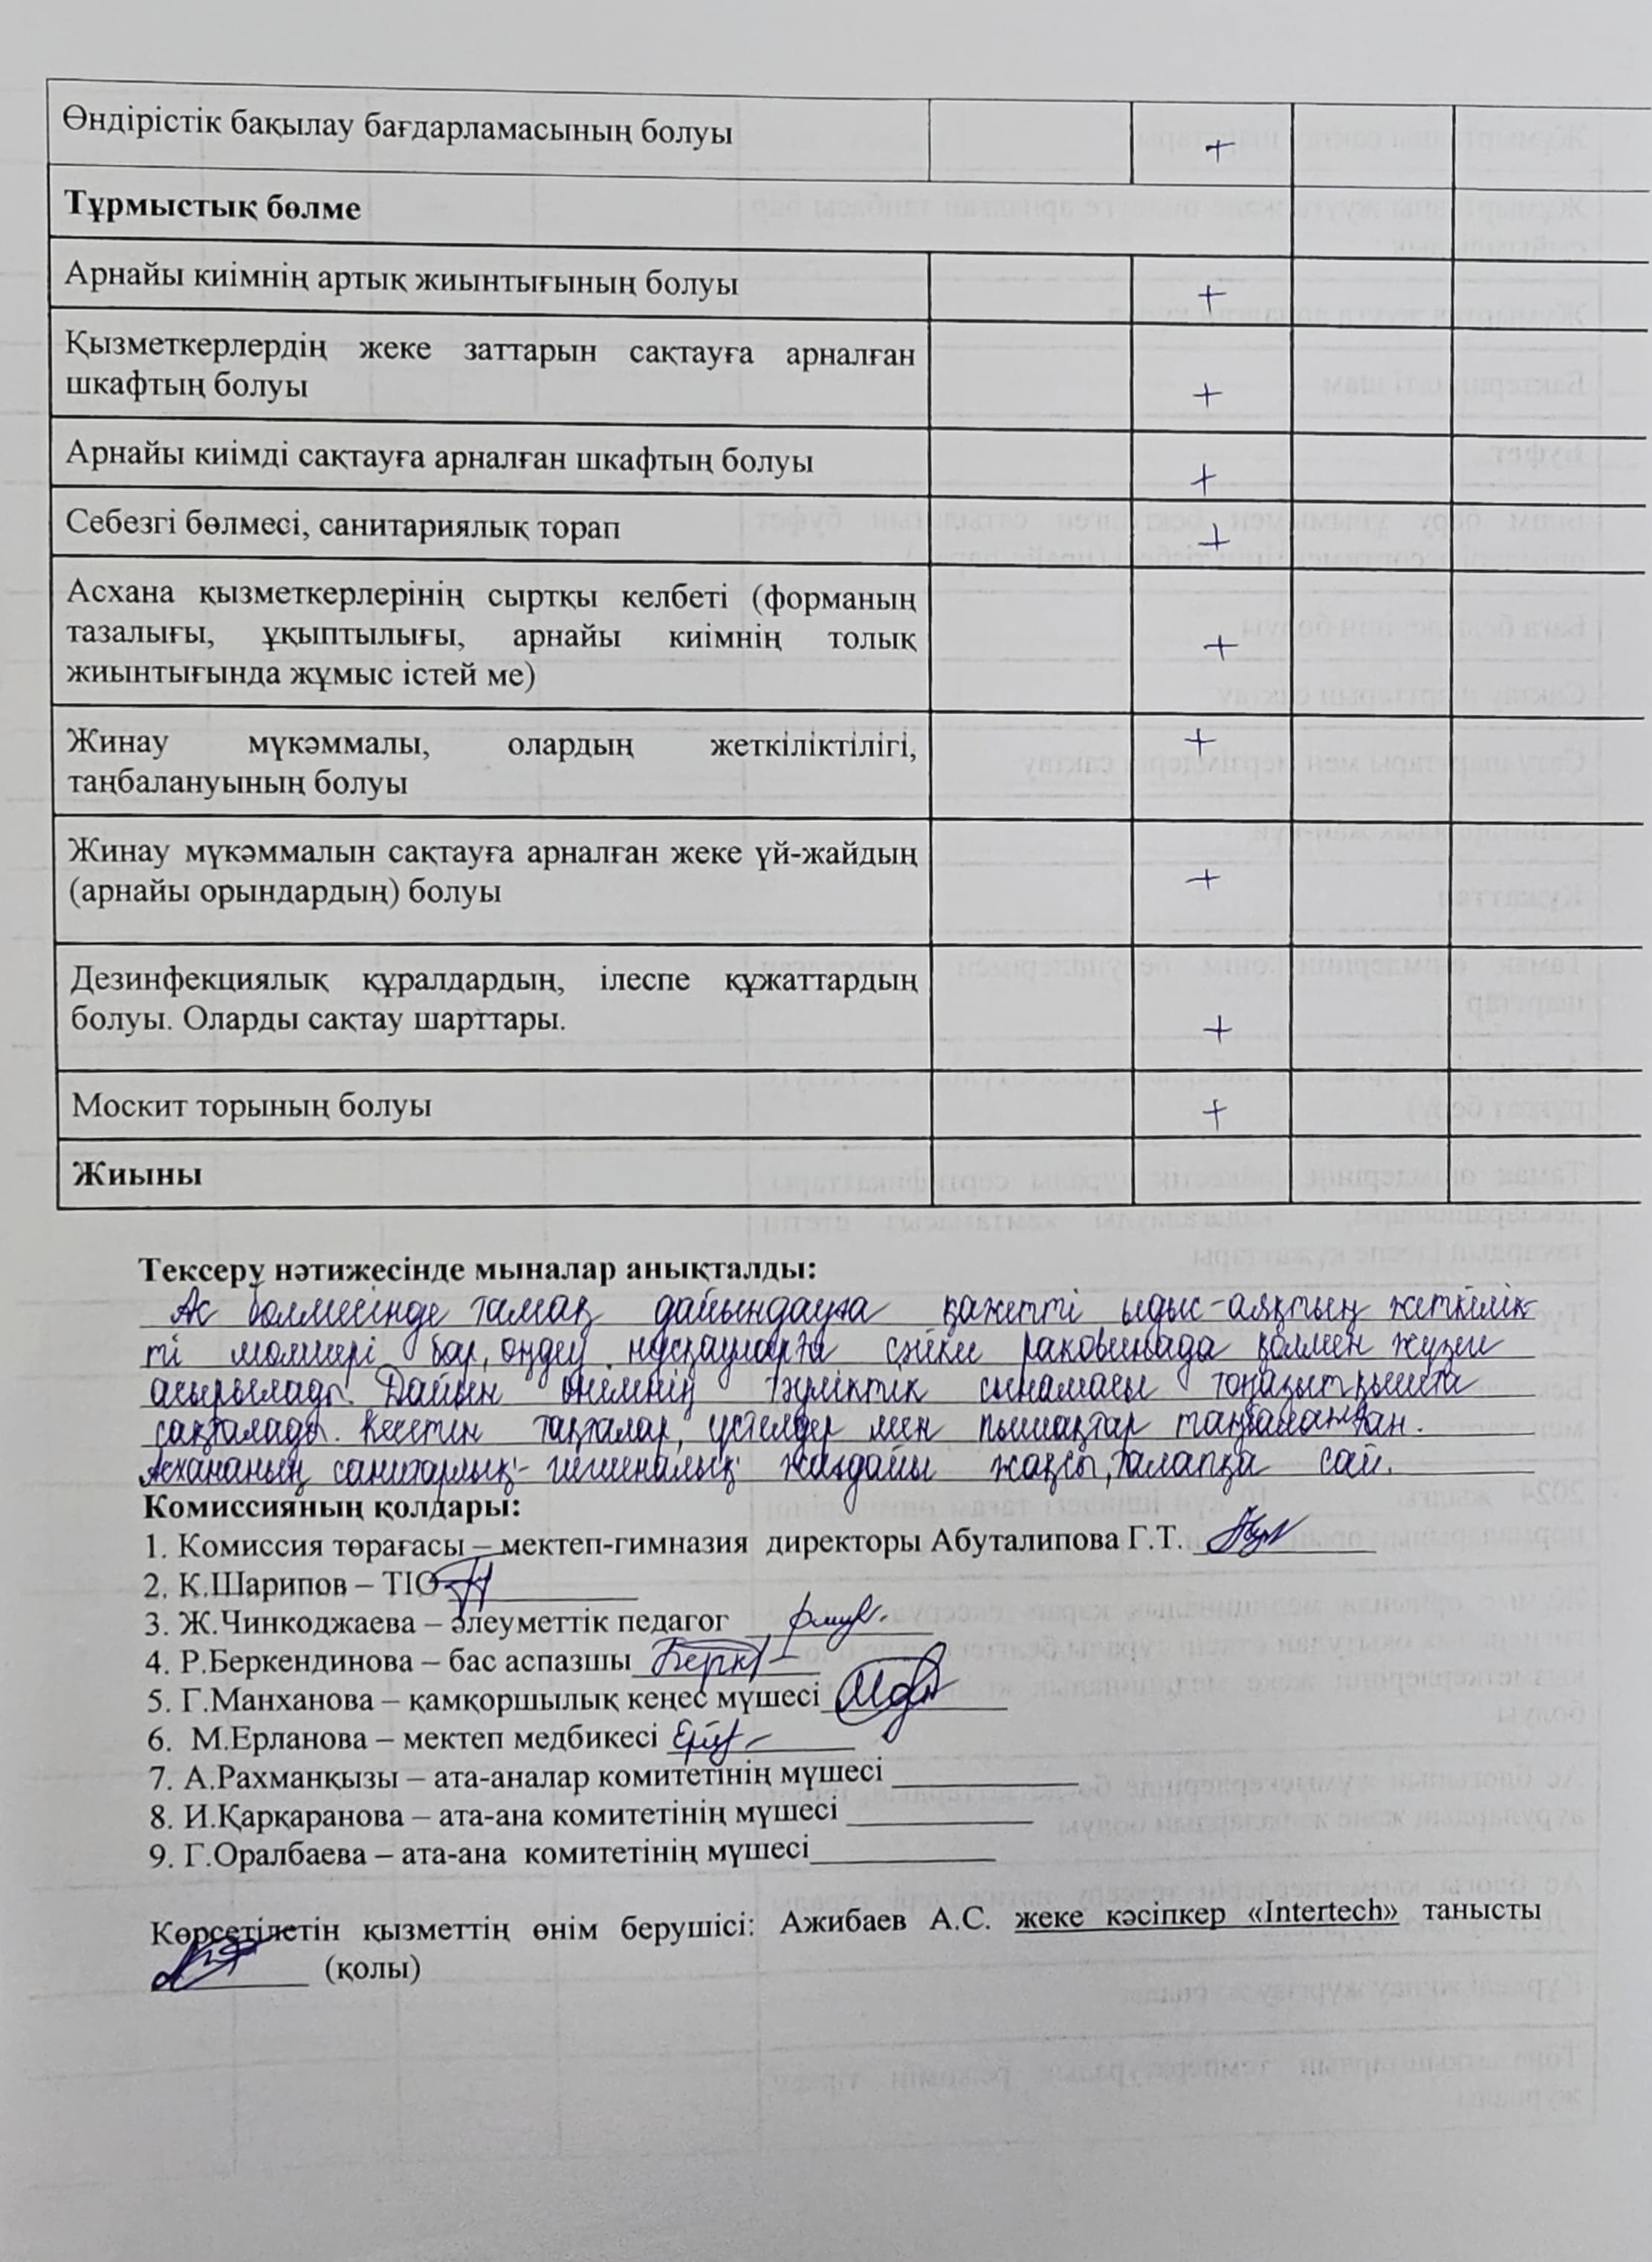 Өндірістік бақылау бағдарламасының болуы +
Тұрмыстық бөлме
Арнайы киімнің артық жиынтығының болуы +
Қызметкерлердің жеке заттарын сақтауға арналған
шкафтың болуы +
Арнайы киімді сақтауға арналған шкафтың болуы +
Себезгі бөлмесі, санитариялық торап +
Асхана қызметкерлерінің сыртқы келбеті (форманың
тазалығы, ұқыптылығы, арнайы киімнің толық +
жиынтығында жұмыс істей ме)
Жинау мүкәммалы, олардың жеткіліктілігі, +
таңбалануының болуы
Жинау мүкәммалын сақтауға арналған жеке үй-жайдың
(арнайы орындардың) болуы +
Дезинфекциялық құралдардың, ілеспе құжаттардың
болуы. Оларды сақтау шарттары. +
Москит торының болуы +
Жиыны
Тексеру нәтижесінде мыналар анықталды:
Ас бөлмесінде тамақ дайындауға қажетті ыдыс-аяқтың жеткілік-
ті мөлшері бар, өңдеу нұсқауларға сәйкес раковинада қолмен жүзеге
асырылады. Дайын өнімнің тәуліктік сынамасы тоңазытқышта
сақталады. Кесетін тақталар, үстелдер мен пышақтар таңбаланған.
Асхананың санитарлық-гигиеналық жағдайы жақсы, талапқа сай.
Комиссияның қолдары:
1. Комиссия төрағасы – мектеп-гимназия директоры Абуталипова Г.Т.
2. К.Шарипов – ТІО
3. Ж.Чинкоджаева – әлеуметтік педагог
4. Р.Беркендинова – бас аспазшы
5. Г.Манханова – қамқоршылық кеңес мүшесі
6. М.Ерланова – мектеп медбикесі
7. А.Рахманқызы – ата-аналар комитетінің мүшесі
8. И.Қарқаранова – ата-ана комитетінің мүшесі
9. Г.Оралбаева – ата-ана комитетінің мүшесі
Көрсетілетін қызметтің өнім берушісі: Ажибаев А.С. жеке кәсіпкер «Intertech» танысты
(қолы)